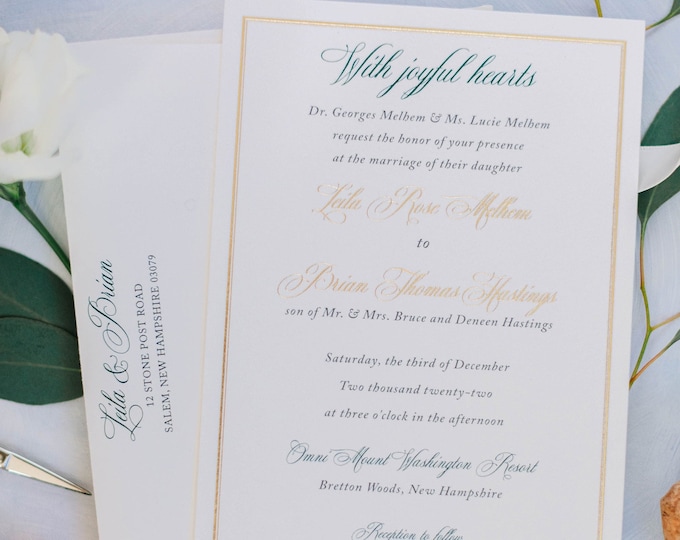 With joyful hearts
Dr. Georges Melhem & Ms. Lucie Melhem
request the honor of your presence
at the marriage of their daughter
Leila Rose Melhem
to
Brian Thomas Hastings
son of Mr. & Mrs. Bruce and Deneen Hastings
Saturday, the third of December
Two thousand twenty-two
at three o'clock in the afternoon
Omni Mount Washington Resort
Bretton Woods, New Hampshire
Reception to follow
Leila & Brian
12 STONE POST ROAD
SALEM, NEW HAMPSHIRE 03079